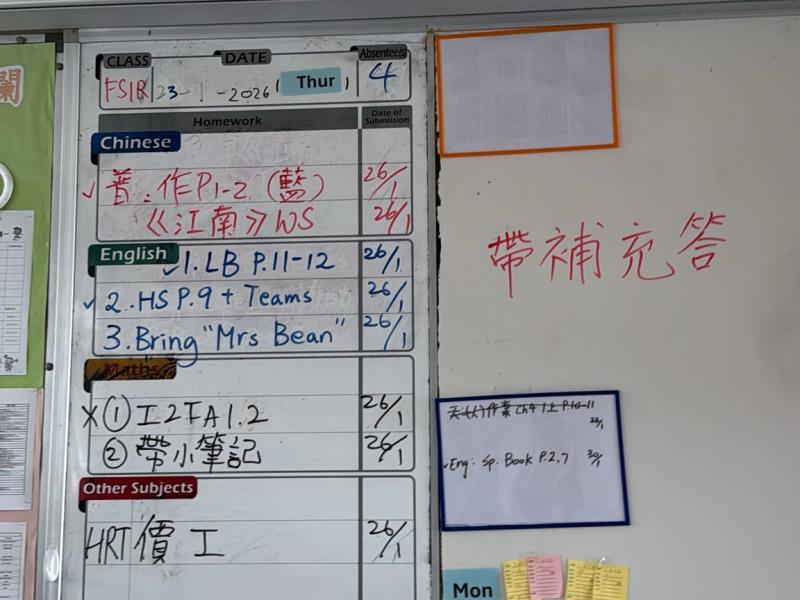 CLASS DATE Absentee(s)
FSIR 23-1-2026 ( Thur ) 4
Homework Date of Submission
Chinese
✓ 普：作P1-2 (藍) 26/1
《江南》WS 26/1
English
✓1. LB P.11-12 26/1
✓ 2. HS P.9 + Teams 26/1
3. Bring "Mrs Bean" 26/1
Maths
X ① 工2FA1.2 26/1
② 帶小筆記 26/1
Other Subjects
HRT 價工 26/1
帶補充答
作業 Ch4 1上 P.10-11
23/1
✓Eng: Sp. Book P.2,7 30/1
Mon